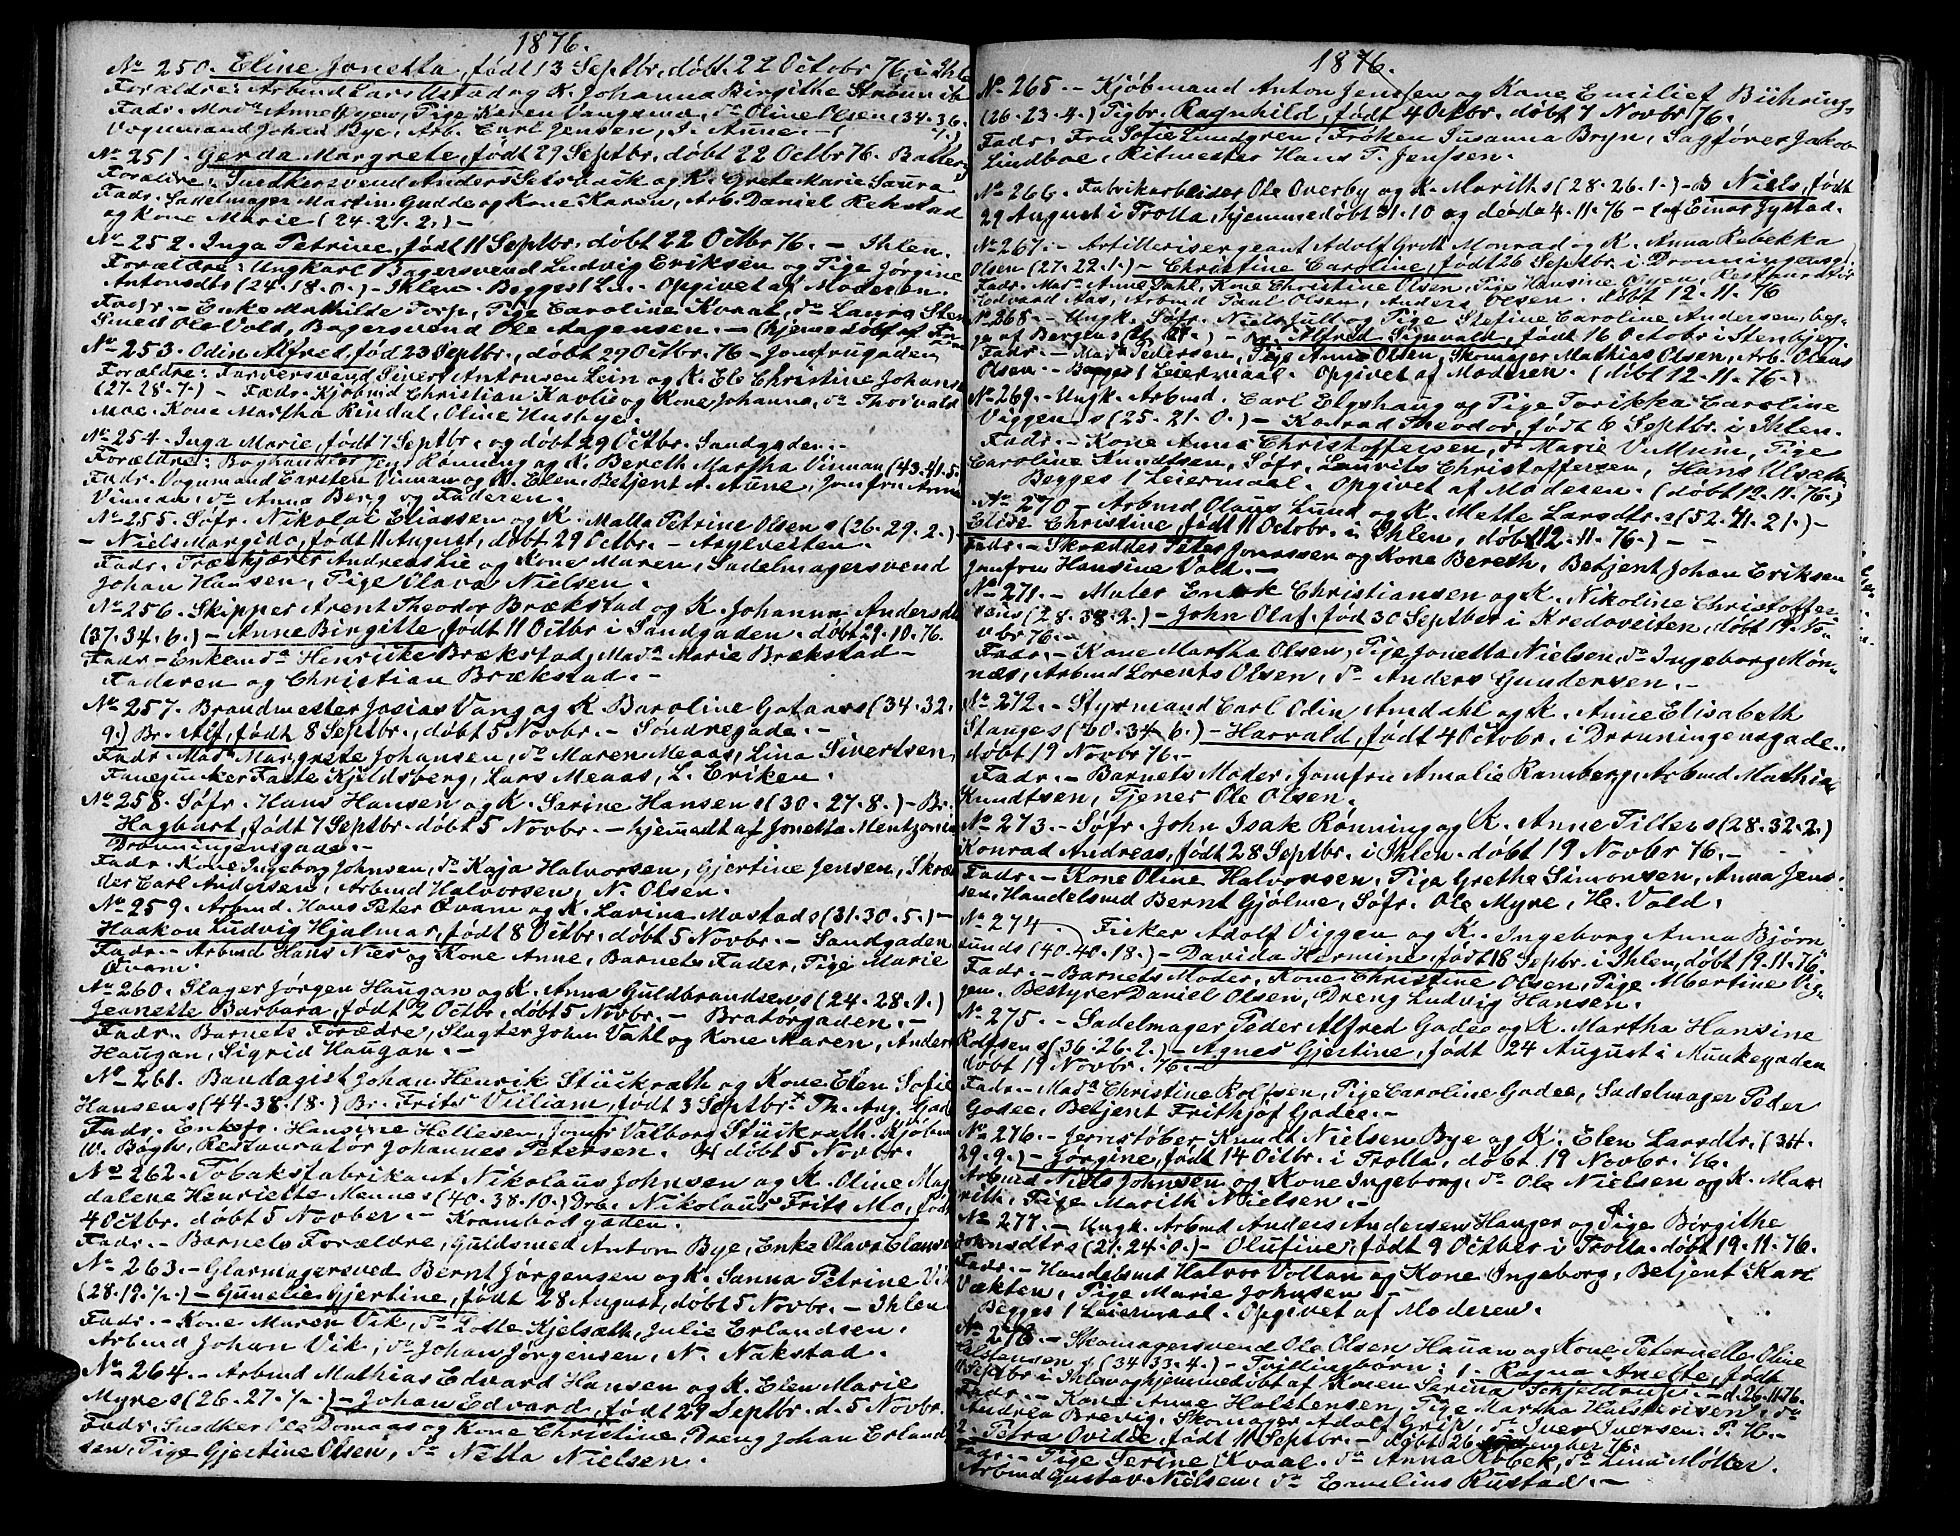 1876.
No 250. Eline Jonetta, født 13 Septbr, døbt 22 Octobr 76, i Ihle
Forældre: Arbmd Lars Ustad og K. Johanna Birgithe
Fadr. Mada Anne Øyen, Pige Karen Vangsmo, do Oline Olsen (34.36.
Vognmand Johan Bye, Arb. Carl Jensen, I. Aune. –
No 251. Gerda Margrete, født 29 Septbr, døbt 22 Octbr 76.
Forældre: Snedkersvend Anders Selsbak og K. Grete Marie Saura
Fadr. Sadelmager Martin Gudde og Kone Karen, Arb. Daniel Rekstad
og Kone Marie (24.21.2.) –
No 252. Inga Petrine, født 11 Septbr. døbt 22 Octbr 76. – Ihlen.
Forældre: Ungkarl Bagersvend Ludvig Eriksen og Pige Jørgine
Antonsdts (24.18.0.) – Ihlen. Begges 1 Lm. Opgivet af Moderen.
Fadr. – Enke Mathilde Torp, Pige Caroline Kvaal, do Laura Sten
Smed Ole Vold, Bagersvend Ole Aagensen. – (hjemedøbt af
No 253. Odin Alfred, fød 23 Septbr, døbt 29 Octbr 76 – Jomfrugaden
Forældre: Farversvend Sivert Antonsen Lein og K. Ele Christine Johans
(27.28.7.) – Fadr. Kjøbmd Christian Kavlie og Kone Johanna, do Thorvald
Moe. Kone Martha Rindal, Oline Husbye.
No 254. Inga Marie, født 7 Septbr, og døbt 29 Octbr. Sandgaden. –
Forældre: Boghandler Jens Rønning og K. Bereth Martha Vinnan (43.41.5
Fadr. Vognmand Carsten Vinnan og K. Elen, Betjent A. Aune, Jomfru Anna
Vinnan, do Anna Berg og Faderen.
No 255. Søfr. Nikolai Eliassen og K. Malla Petrine Olsens (26.29.2.)
– Niels Margido, født 11 August, døbt 29 Octbr. – Asylveiten.
Fadr. Træskjærer Andreas Lie og Kone Maren, Sadelmagersvend
Johan Hansen, Pige Olava Nielsen.
No 256. Skipper Arent Theodor Brækstad og K. Johanna Andersdt
(37.34.6.) – Anne Birgitte, født 11 Octbr i Sandgaden. døbt 29.10.76.
Fadr – Enkemda Henrikke Brækstad, Mada Marie Brækstad –
Faderen og Christian Brækstad. –
No 257. Brandmester Josias Vang og K. Baroline Gataars (34.32.
9.) Br. Alf, født 8 Septbr, døbt 5 Novbr. – Søndregade. –
Fadr. Mada Margrete Johansen, do Maren Meaas, Lina Sivertsen,
Fanejunker Faste Kjeldsberg, Lars Meaas, L. Eriken.
No 258. Søfr. Hans Hansen og K. Sarine Hansens (30.27.8.) – Br.
Hagbart, født 7 Septbr. døbt 5 Novbr. – hjemedt af Jonetta Mentzoni
Dronningensgade. –
Fadr. Kone Ingeborg Johnsen, do Kaja Halvorsen, Gjertine Jensen, Skræ
der Carl Andersen, Arbmd Halvorsen, N. Olsen.
No 259. Arbmd. Hans Peter Qvam og K. Lavina Mostads (31.30.5.) –
Haakon Ludvig Hjalmar, født 8 Octbr. døbt 5 Novbr. – Sandgaden
Fadr. – Arbmd Hans Nies og Kone Anne, Barnets Fader, Pige Marie
Qvam.
No 260. Slager Jørgen Haugan og K. Anna Guldbrandsens (24.28.1.)
Jeanette Barbara, født 2 Octbr, døbt 5 Novbr. – Bratørgaden. –
Fadr. Barnets Forædre, Slagter John Vahl og Kone Maren, Anders
Haugan, Sigrid Haugan. –
No 261. Bandagist Johan Henrik Stückrath og Kone Elen Sofie
Hansens (44.38.18.) Br. Frits Villiam, født 3 Septbr. Th. Aug. Gade
Fadr. Enkefr. Hansine Hellesen, Jomfr Valborg Stückrath. Kjøbm
W. Bøgh, Restauratør Johannes Petersen. døbt 5 Novbr.
No 262. Tobaksfabrikant Nikolaus Johnsen og K. Oline Mag
dalene Henriette Mennes (40.38.10.) Drb. Nikolaus Frits Mo, født
4 Octbr. døbt 5 Novber. – Krambodgaden.
Fadr. – Barnets Forældre, Guldsmed Anton Bye, Enke Olava Clausen
No 263. – Glarmagersved Bernt Jørgensen og K. Sanna Petrine Vik
(28.19.½.) – Gunelie Gjertine, født 28 August, døbt 5 Novbr. – Ihlen
Fadr. – Kone Maren Vik, do Lotte Kjelsæth, Julie Erlandsen,
Arbmd Johan Vik, do Johan Jørgensen, N. Nakstad.
No 264. – Arbmd Mathias Edvard Hansen og K. Elen Marie
Myres (26.27.½.) – Johan Edvard, født 29 Septbr. d. 5 Novbr.
Fadr. Snedker Ole Domaas og Kone Christine, Dreng Johan Erland
sen, Pige Gjertine Olsen, do Netta Nielsen.
1876.
No 265. – Kjøbmand Anton Jenssen og Kone Emilie f Bühring,
(26.23.4.) Pigbr. Ragnhild, født 4 Octbr. døbt 7 Novbr 76.
Fadr. Fru Sofie Lundgren, Frøken Susanna Bryn, Sagfører Jakob
Lindboe, Ritmester Hans P. Jenssen.
No 266. Fabrikarbeider Ole Overby og K. Mariths (28.26.1.) – B Niels, født
29 August i Trolla, hjemmedøbt 31.10 og døda 4.11.76 – af Einar Jystad.
No 267. – Artillerisergeant Adolf Grott Monrad og K. Anna Rebekka
Olsen (27.22.1.) – Christine Caroline, født 26 Septbr. i Dronningensg.
Fadr. Mada Anne Dahl, Kone Christine Olsen, Pige Hansine Øyen, Restauratør
Edvard Aas, Arbmd Paul Olsen, Anders Olsen. døbt 12.11.76
No 268. – Ungk. Søfr. Niels Jull og Pige Stefine Caroline Andersen, beg-
ge af Bergens – Alfred Sigvald, født 16 Octobr i Stenbjerg.
Fadr. – Mada Pedersen, Pige Anne Olsen, Skomager Mathias Olsen, Arb. Olaus
Olsen. – Begges 1 Leiermaal. Opgivet af Moderen. (døbt 12.11.76.)
No 269. – Ungk. Arbmd. Carl Elgshaug og Pige Forikka Caroline
Viggens (25.21.0.) – Konrad Theodor, født 6 Septbr. i Ihlen.
Fadr. – Kone Anna Christoffersen, do Marie Vullum, Pige
Caroline Knudtsen, Søfr. Laurits Christoffersen, Hans Ulsæth
Begges 1 Leiermaal. Opgivet af Moderen. (døbt 12.11.76.)
No 270 – Arbmd Olaus Lund og K. Mette Larsdtrs (52.41.21.) –
Elise Christine, født 11 Octobr. i Ihlen, døbt 12.11.76.) –
Fadr. – Skrædder Peter Jonassen og Kone Bereth, Betjent Johan Eriksen
Jomfru Hansine Vold. –
No 271. – Maler Enok Christiansen og K. Nikoline Christoffer
sens (28.38.2.) – John Olaf, fød 30 Septber i Kredoveiten, døbt 19 No-
vbr 76. –
Fadr. – Kone Martha Olsen, Pige Jonetta Nielsen, do Ingeborg Møn-
næs, Arbmd Lorents Olsen, do Anders Gundersen. –
No 272. – Styrmand Carl Odin Amdahl og K. Anne Elisabeth
Stauges (30.34.6.) – Harvald, født 4 Octobr. i Dronningensgade.
døbt 19 Novbr 76. –
Fadr. – Barnets Moder, Jomfru Amalie Ramberg, Arbmd Mathias
Knudtsen, Tjener Ole Olsen.
No 273. – Søfr. John Isak Rønning og K. Anne Tillers (28.32.2.)
Konrad Andreas, født 28 Septbr. i Ihlen. døbt 19 Novbr 76. –
Fadr. – Kone Oline Halvorsen, Pige Grethe Simonsen, Anna Jens
sen, Handelsmd Bernt Gjølme, Søfr. Ole Myre, H. Vald.
No 274. Fisker Adolf Viggen og K. Ingeborg Anna Bjørn
lunds (40.40.18.) – Davida Hermine, født 18 Septbr. i Ihlen, døbt 19.11.76.
Fadr. – Barnets Moder, Kone Christine Olsen, Pige Albertine Vig-
gen. Bestyrer Daniel Olsen, Dreng Ludvig Hansen.
No 275. – Sadelmager Peder Alfred Gadee og K. Martha Hansine
Rolfsens (36.26.2.) – Agnes Gjertine, født 24 August i Munkegaden
døbt 19 Novbr. 76. –
Fadr. – Mada Christine Rolfsen, Pige Caroline Gadee, Sadelmager Peder
Gadee, Betjent Frithjof Gadee. –
No 276. – Jernstøber Knudt Nielsen Bye og K. Elen Larsdtr. (34.
29.9.) – Jørgine, født 14 Octbr. i Trolla, døbt 19 Novbr. 76.
Arbmd Niels Johnsen og Kone Ingeborg, do Ole Nielsen og K. Mar
rith, Pige Marith Nielsen. –
No 277. – Ungk. Arbmd Anders Andersen Hauger og Pige Birgithe
Johnsdtrs (21.24.0.) – Olufine, født 9 Octber i Trolla. døbt 19.11.76.
Fadr. – Handelsmd Halvor Voltan og Kone Ingeborg, Betjent Karl
Vækten, Pige Marie Johnsen –
Begges 1 Leiermaal. Opgivet af Moderen.
No 278. – Skomagersvend Ole Olsen Hauan og Kone Peternelle Oline
Halstensens (34.33.4.) – Tvillingbørn: 1. Ragna Anette, født
11 Septbr i Ihlen og hjemmedøbt af Konen Serina Schjeldrup. – d. 26.11.76.
Fadr. – Kone Anne Halstensen, Pige Martha Halstensen, do
Andrea Brevig, Skomager Adolf Grip, do Iver Iversen. P. H. –
2. Petra Ovidie, født 11 Septbr. – døbt 26 November 76.
Fadr. – Pige Serine Kvaal. do Anna Robek, do Lina Møller.
Arbmd Gustav Nielsen, do Emelius Rustad. –